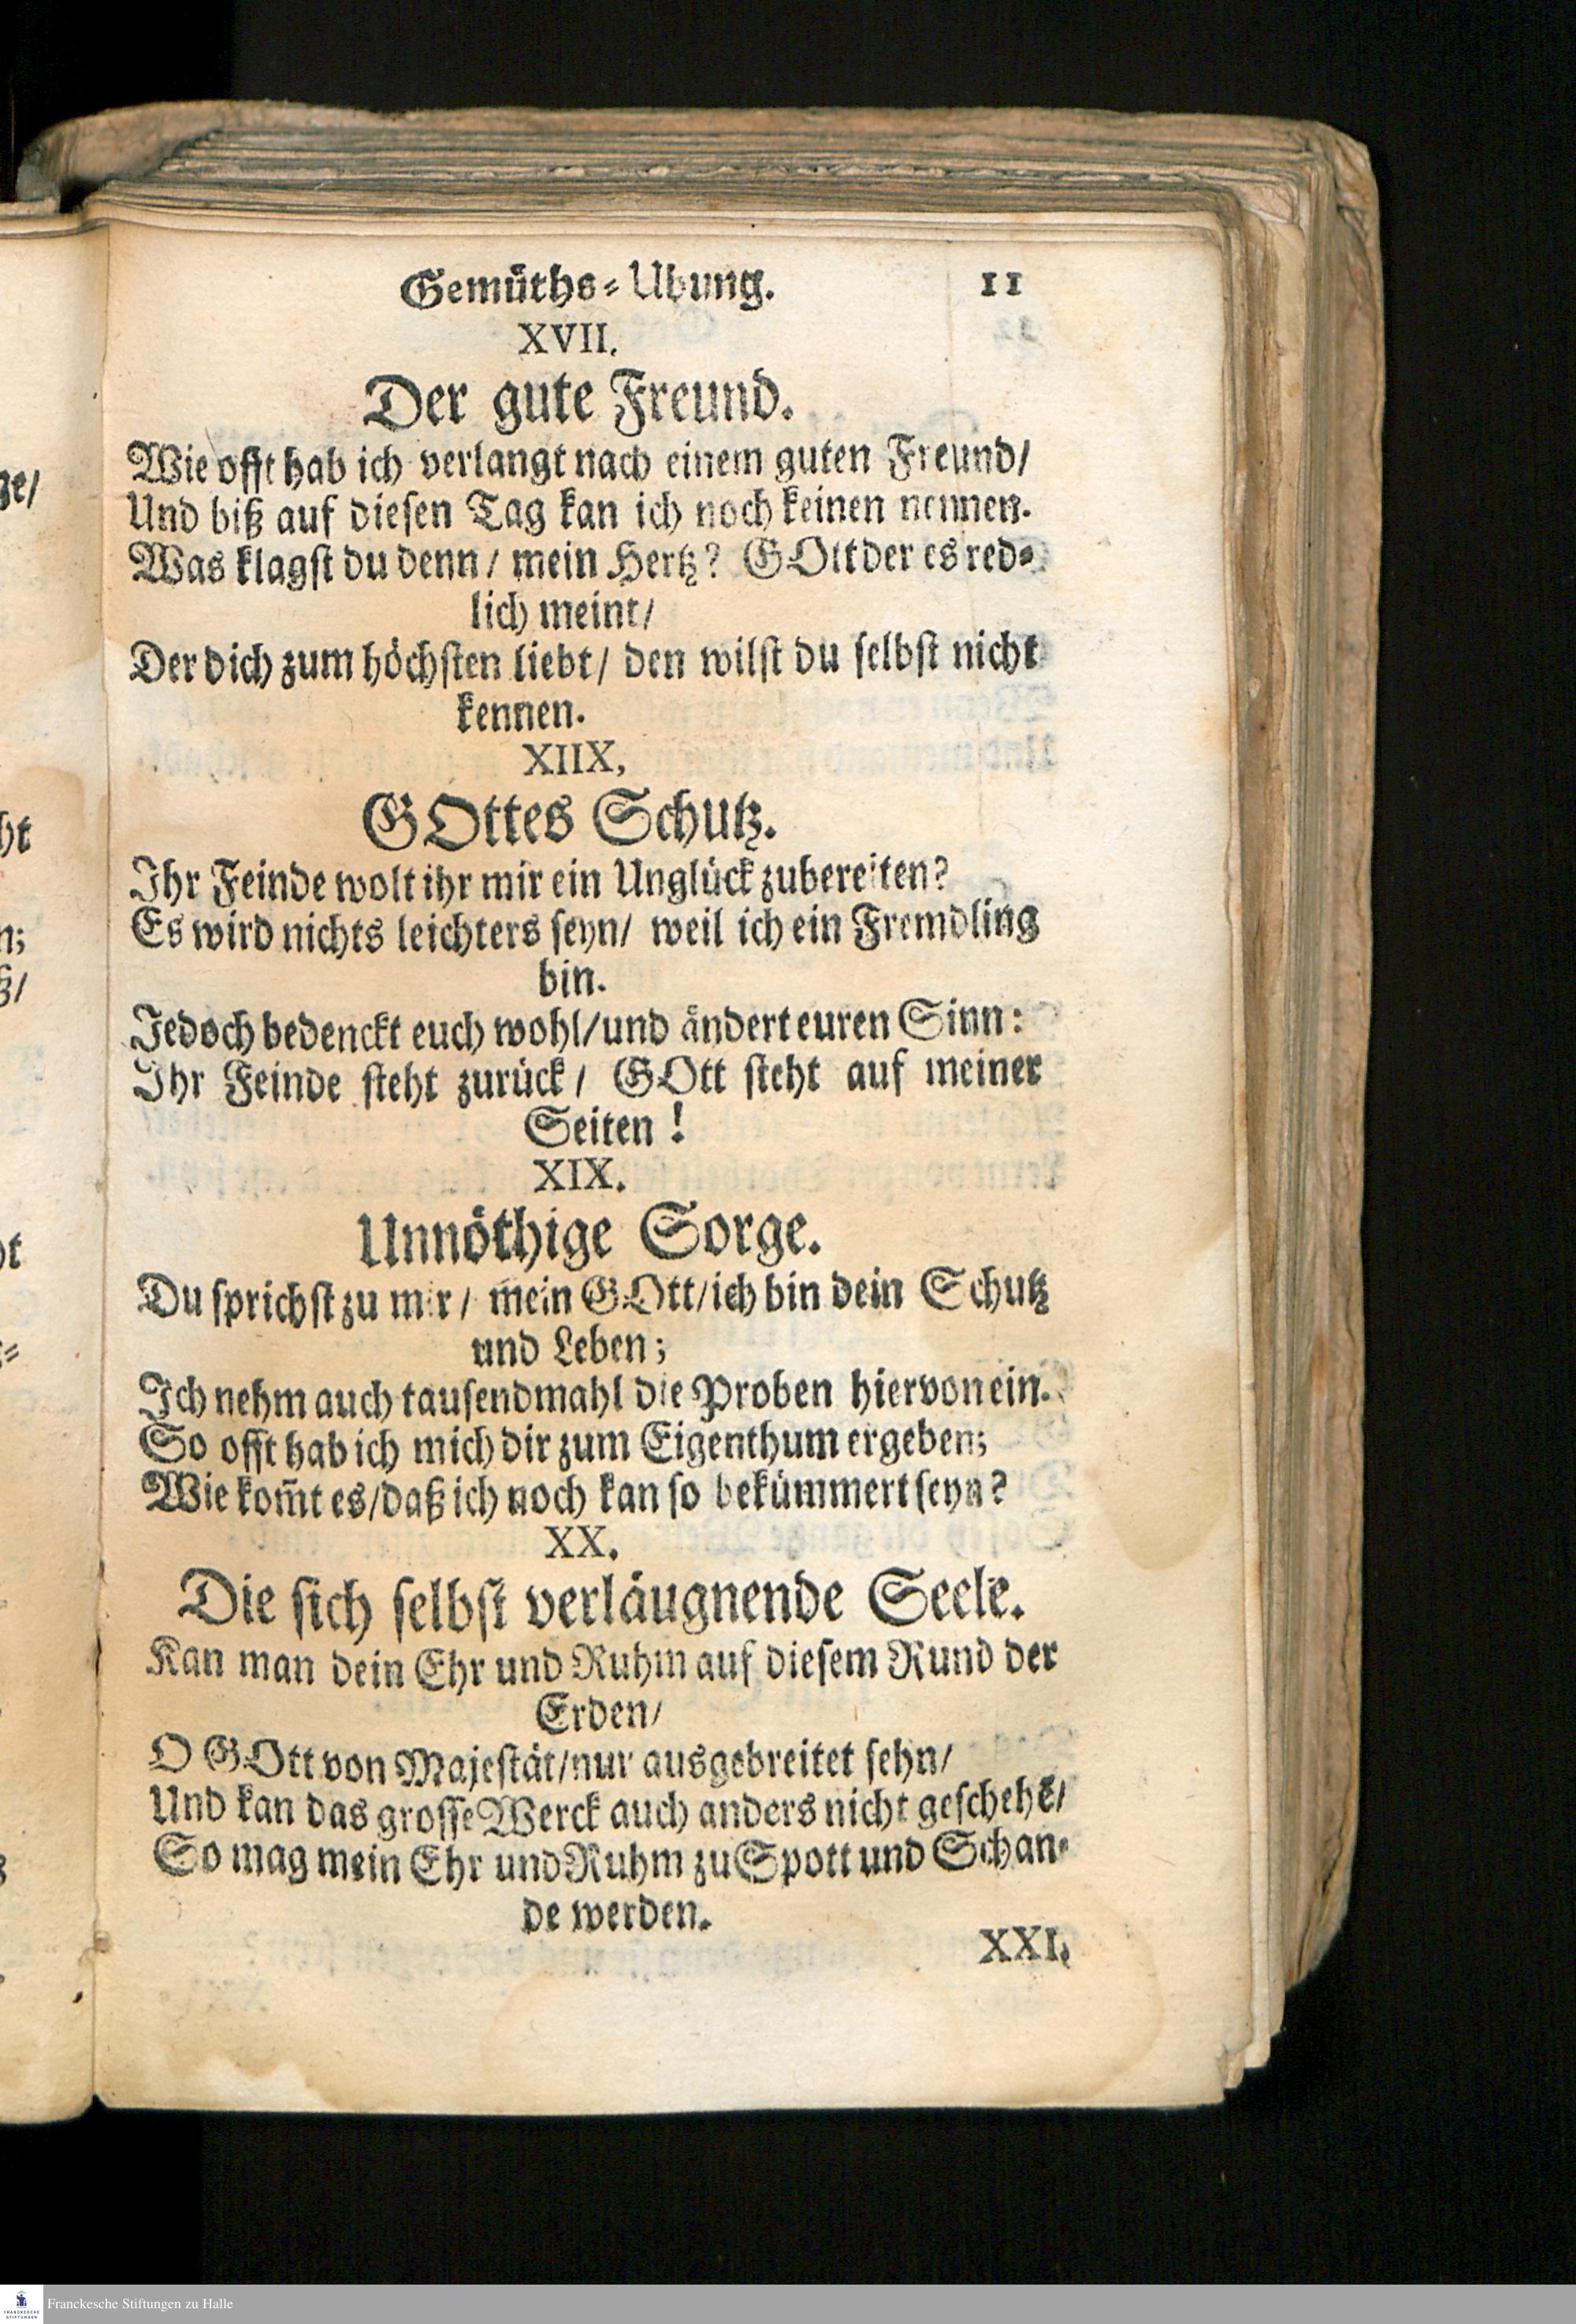 Gemüths-Ubung. 11
XVII.
Der gute Freund.
Wie offt hab ich verlangt nach einem guten Freund/
Und biß auf diesen Tag kan ich noch keinen nennen.
Was klagst du denn/ mein Hertz? GOtt der es red-
lich meint/
Der dich zum höchsten liebt/ den wilst du selbst nicht
kennen.
XIIX.
GOttes Schutz.
Ihr Feinde wolt ihr mir ein Unglück zubereiten?
Es wird nichts leichters seyn/ weil ich ein Fremdling
bin.
Jedoch bedenckt euch wohl/und ändert euren Sinn:
Ihr Feinde steht zurück/ GOtt steht auf meiner
Seiten!
XIX.
Unnöthige Sorge.
Du sprichst zu mir/ mein GOtt/ich bin dein Schutz
und Leben;
Ich nehm auch tausendmahl die Proben hiervon ein.
So offt hab ich mich dir zum Eigenthum ergeben;
Wie kom̃t es/daß ich noch kan so bekümmert seyn?
XX.
Die sich selbst verläugnende Seele.
Kan man dein Ehr und Ruhm auf diesem Rund der
Erden/
O GOtt von Majestät/nur ausgebreitet sehn/
Und kan das grosse Werck auch anders nicht gescheh̄e/
So mag mein Ehr und Ruhm zu Spott und Schan-
de werden.
XXI.
ze/
ht
n;
ß/
FRANCKESCHE STIFTUNGEN
Franckesche Stiftungen zu Halle